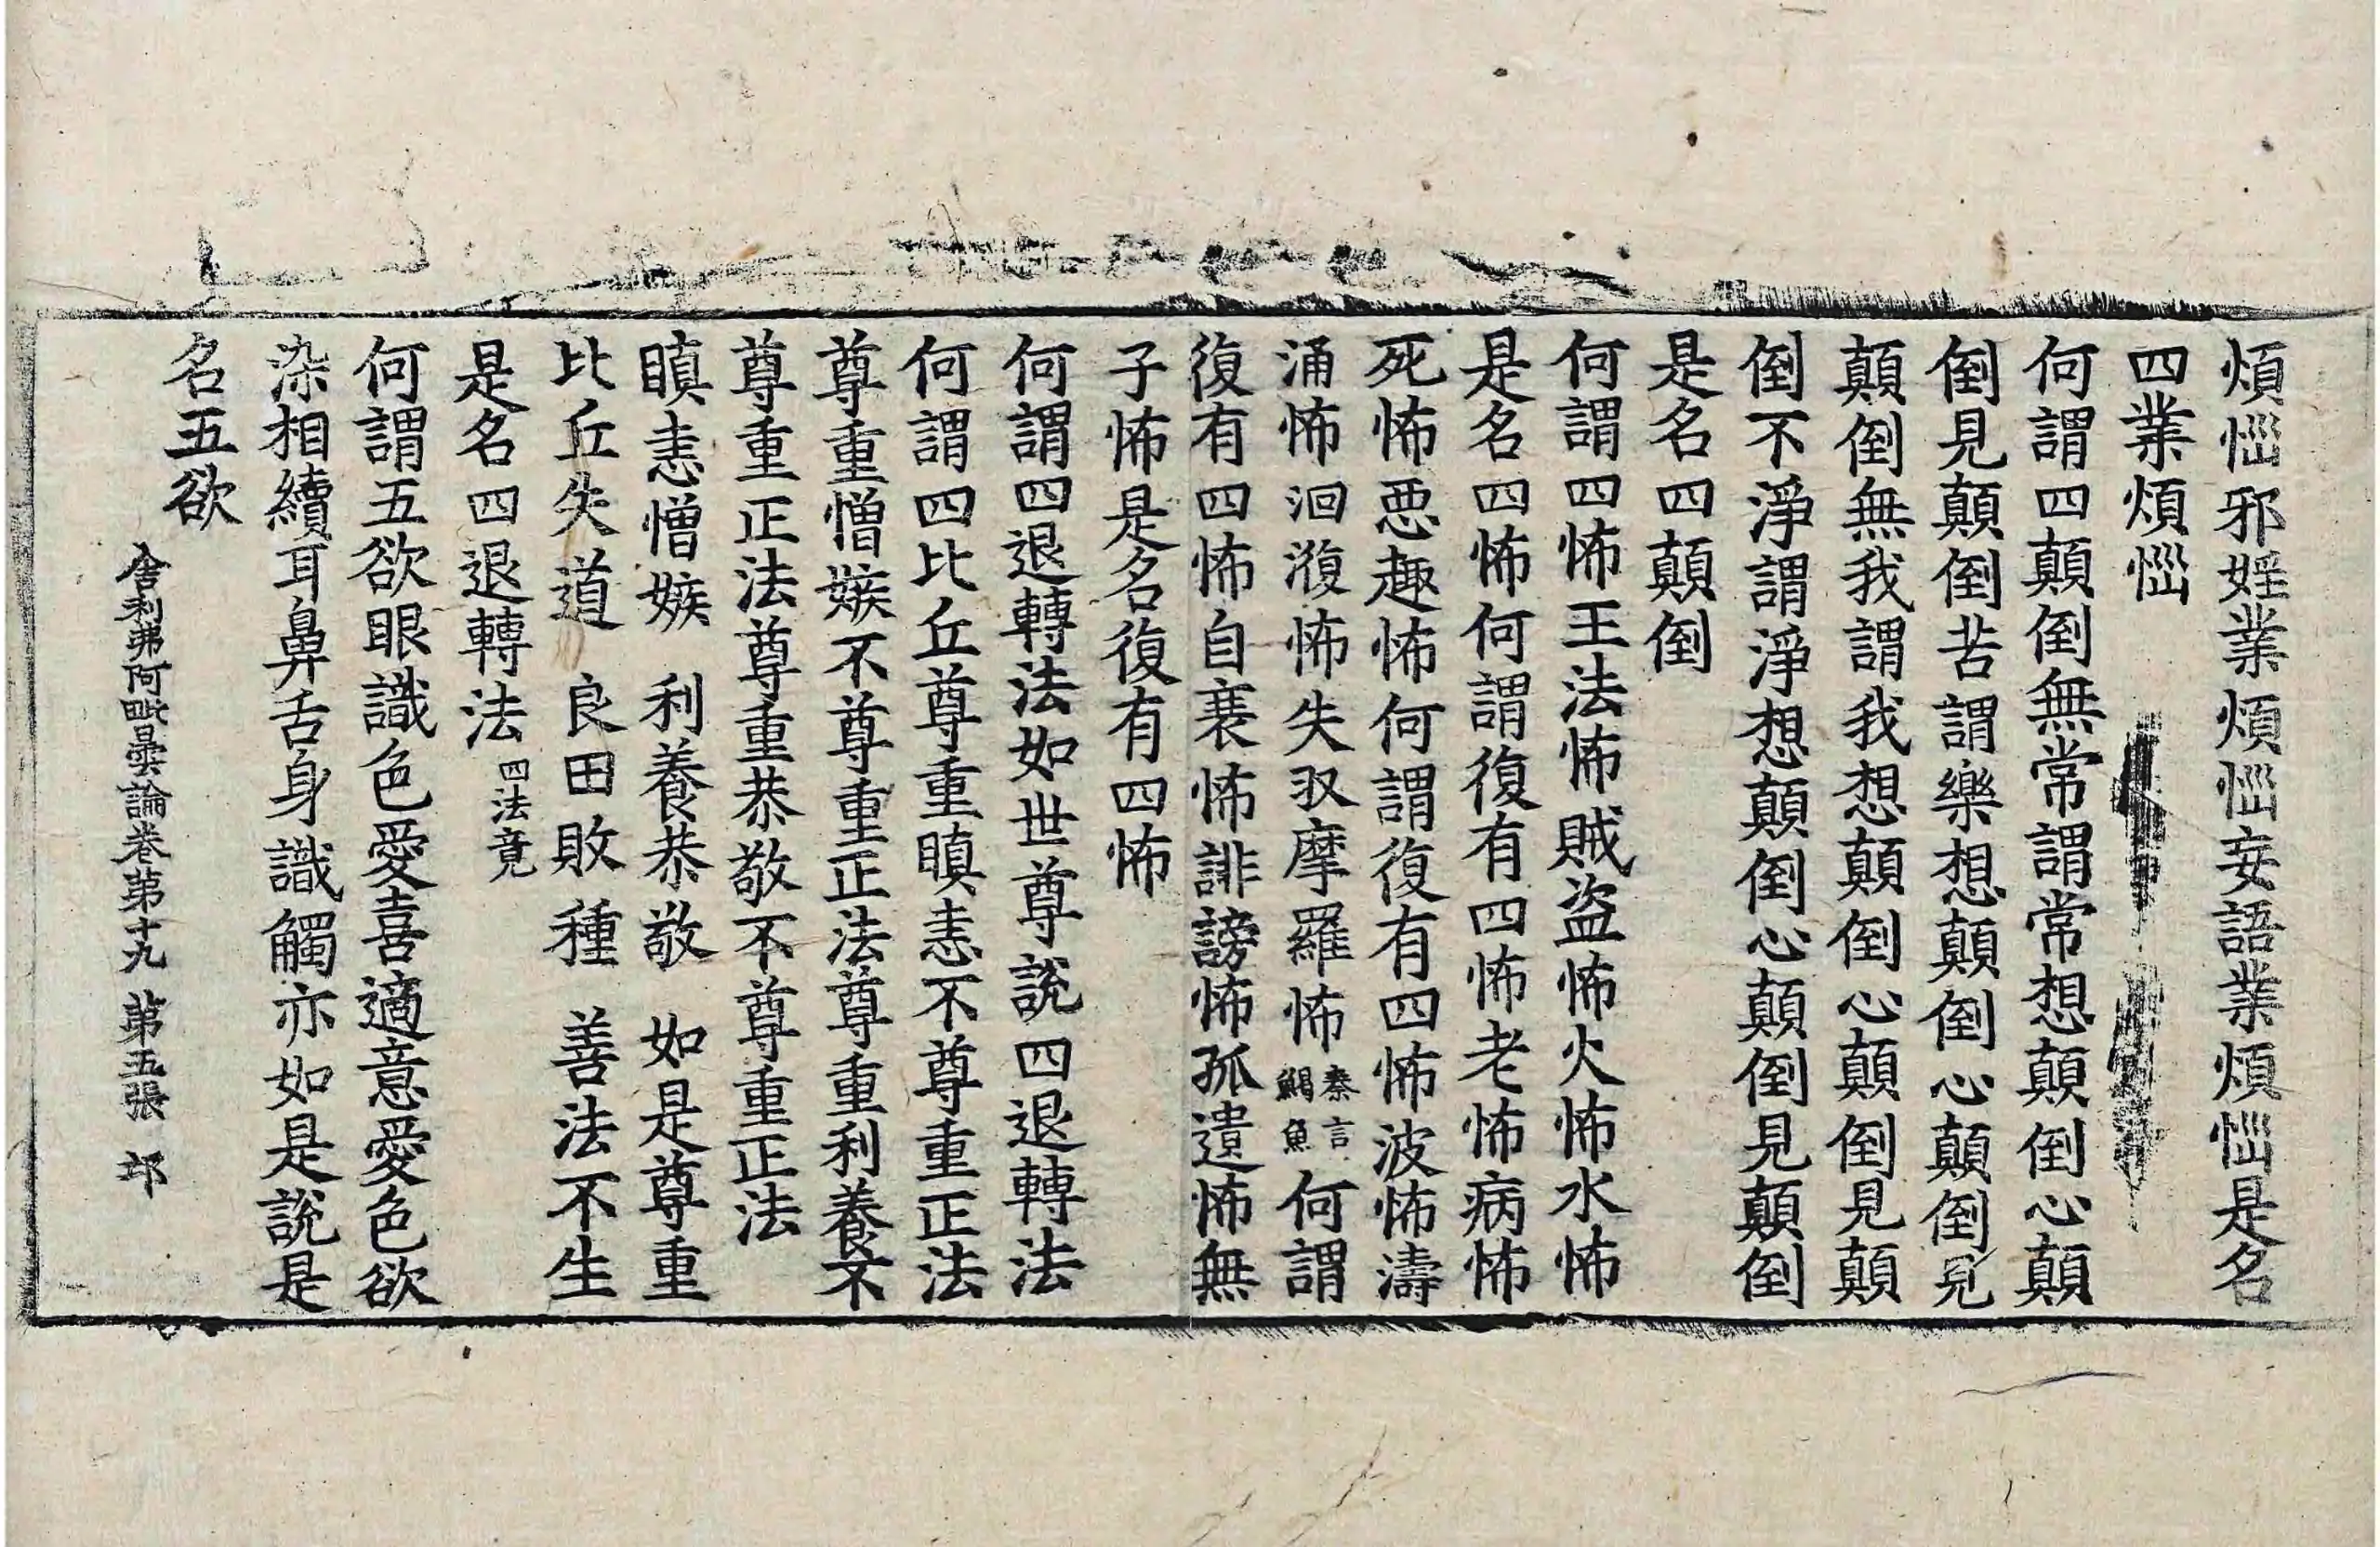 煩惱邪婬業煩惱妄語業煩惱是名
四業煩惱
何謂四顛倒無常謂常想顛倒心顛
倒見顛倒苦謂樂想顛倒心顛倒見
顛倒無我謂我想顛倒心顛倒見顛
倒不淨謂淨想顛倒心顛倒見顛倒
是名四顛倒
何謂四怖王法怖賊盜怖火怖水怖
是名四怖何謂復有四怖老怖病怖
死怖惡趣怖何謂復有四怖波怖濤
涌怖洄澓怖失収摩羅怖秦言鰐魚何謂
復有四怖自衰怖誹謗怖孤遺怖無
子怖是名復有四怖
何謂四退轉法如世尊說四退轉法
何謂四比丘尊重瞋恚不尊重正法
尊重憎嫉不尊重正法尊重利養不
尊重正法尊重恭敬不尊重正法
瞋恚憎嫉 利養恭敬 如是尊重
比丘失道 良田敗種 善法不生
是名四退轉法四法竟
何謂五欲眼識色愛喜適意愛色欲
染相續耳鼻舌身識觸亦如是說是
名五欲
舍利弗阿毗曇論卷第十九 第五張 邙